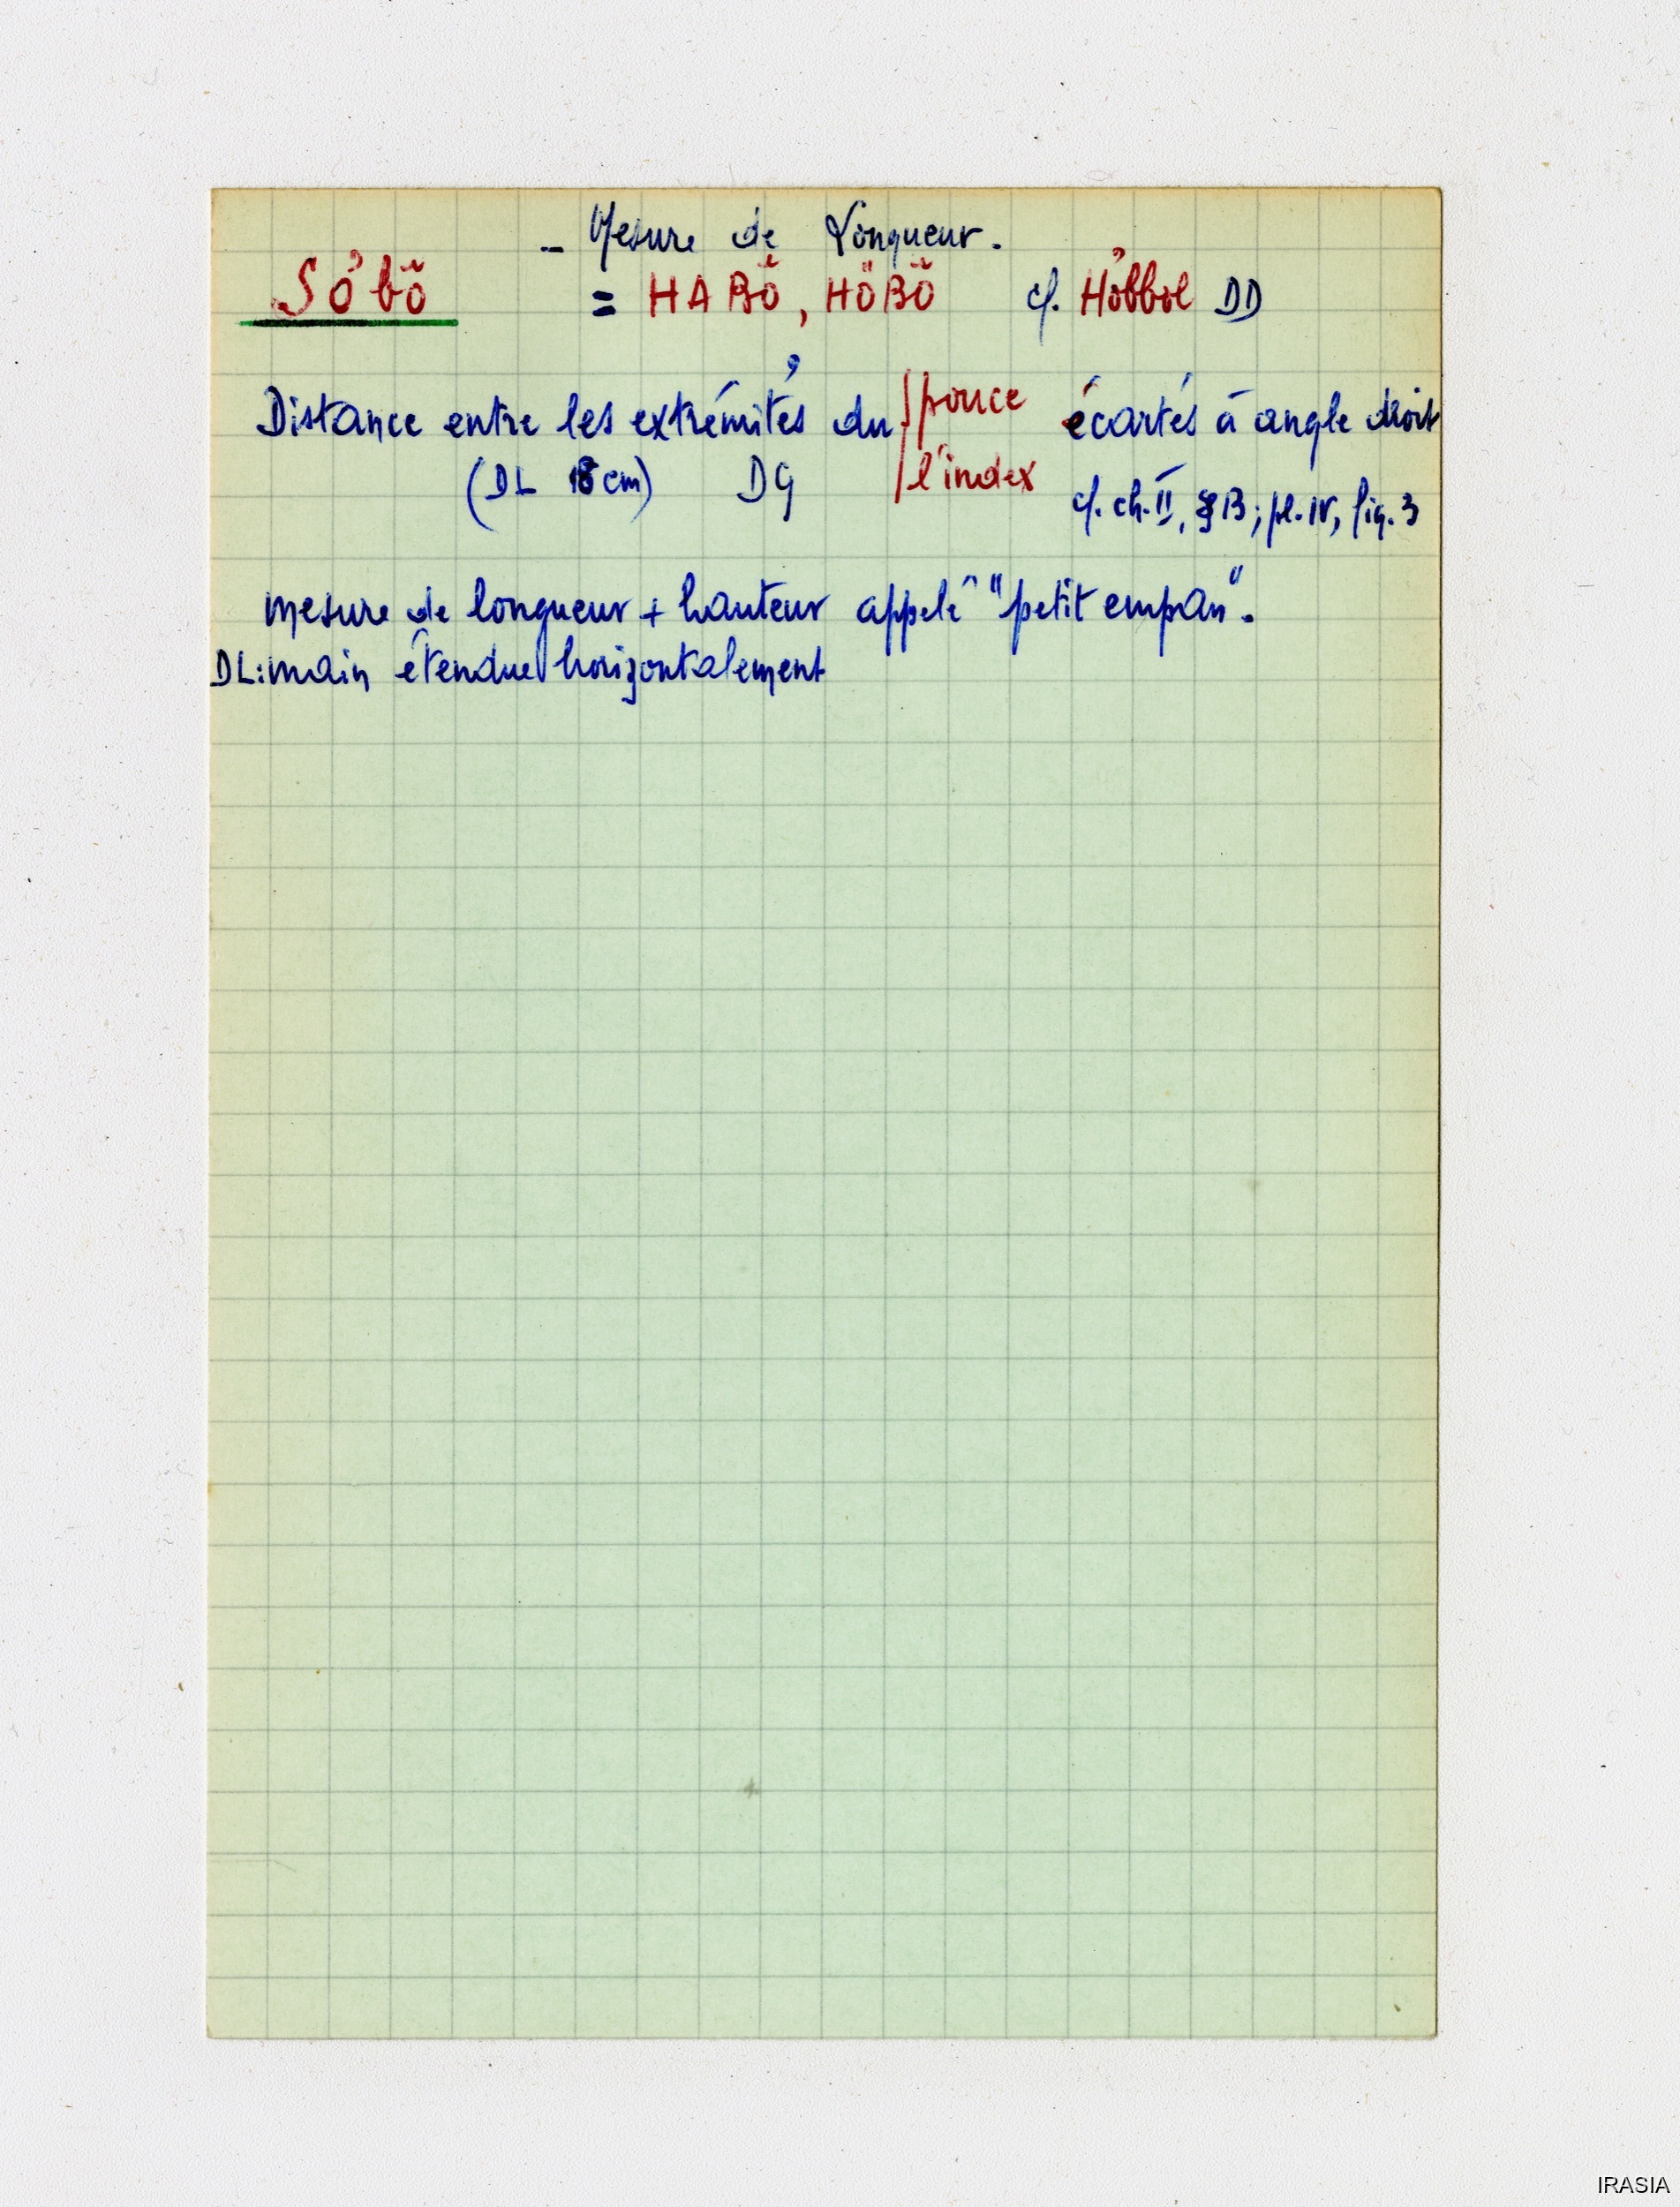 - Mesure de Longueur -
Sơ̆bơ̆ = HABƠ̆, HƠ̆BƠ̆ cf. Hơ̆bbơl DD
Distance entre les extrémités du pouce écartés à angle droit
(DL 18 cm) DG l'index
cf. ch. II, § B ; pl. IV, fig. 3
mesure de longueur + hauteur appelé "petit empan".
DL : main étendue horizontalement
IRASIA